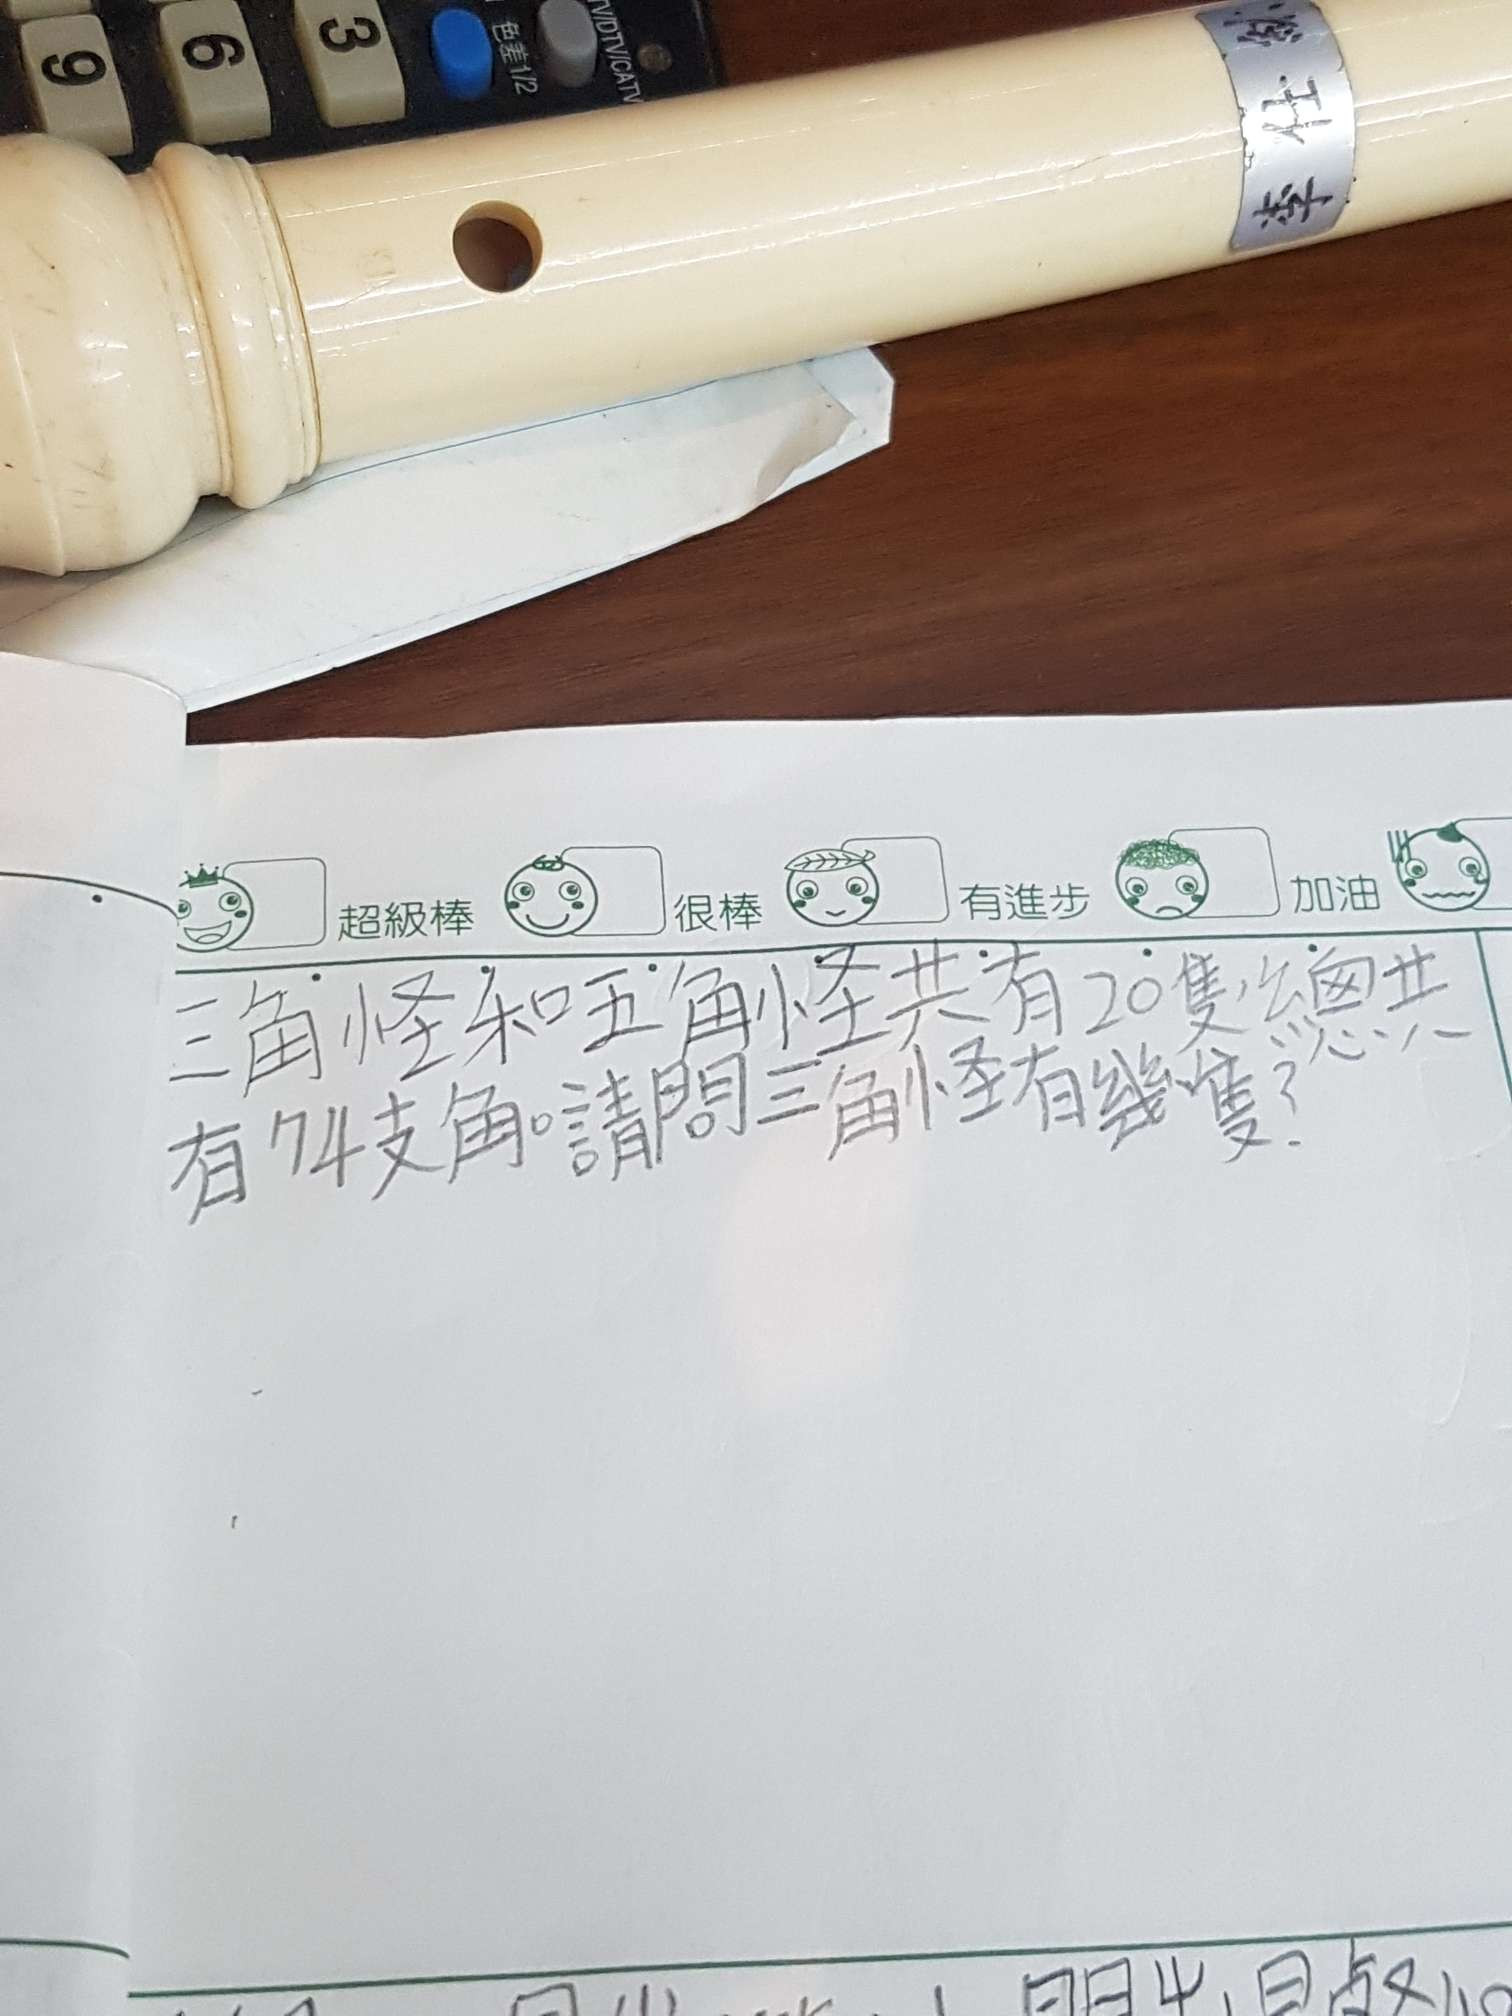 9 6 3 色差1/2 TV/DTV/CATV
李仕
超級棒 很棒 有進步 加油
三角怪和五角怪共有20隻,總共
有74支角。請問三角怪有幾隻?